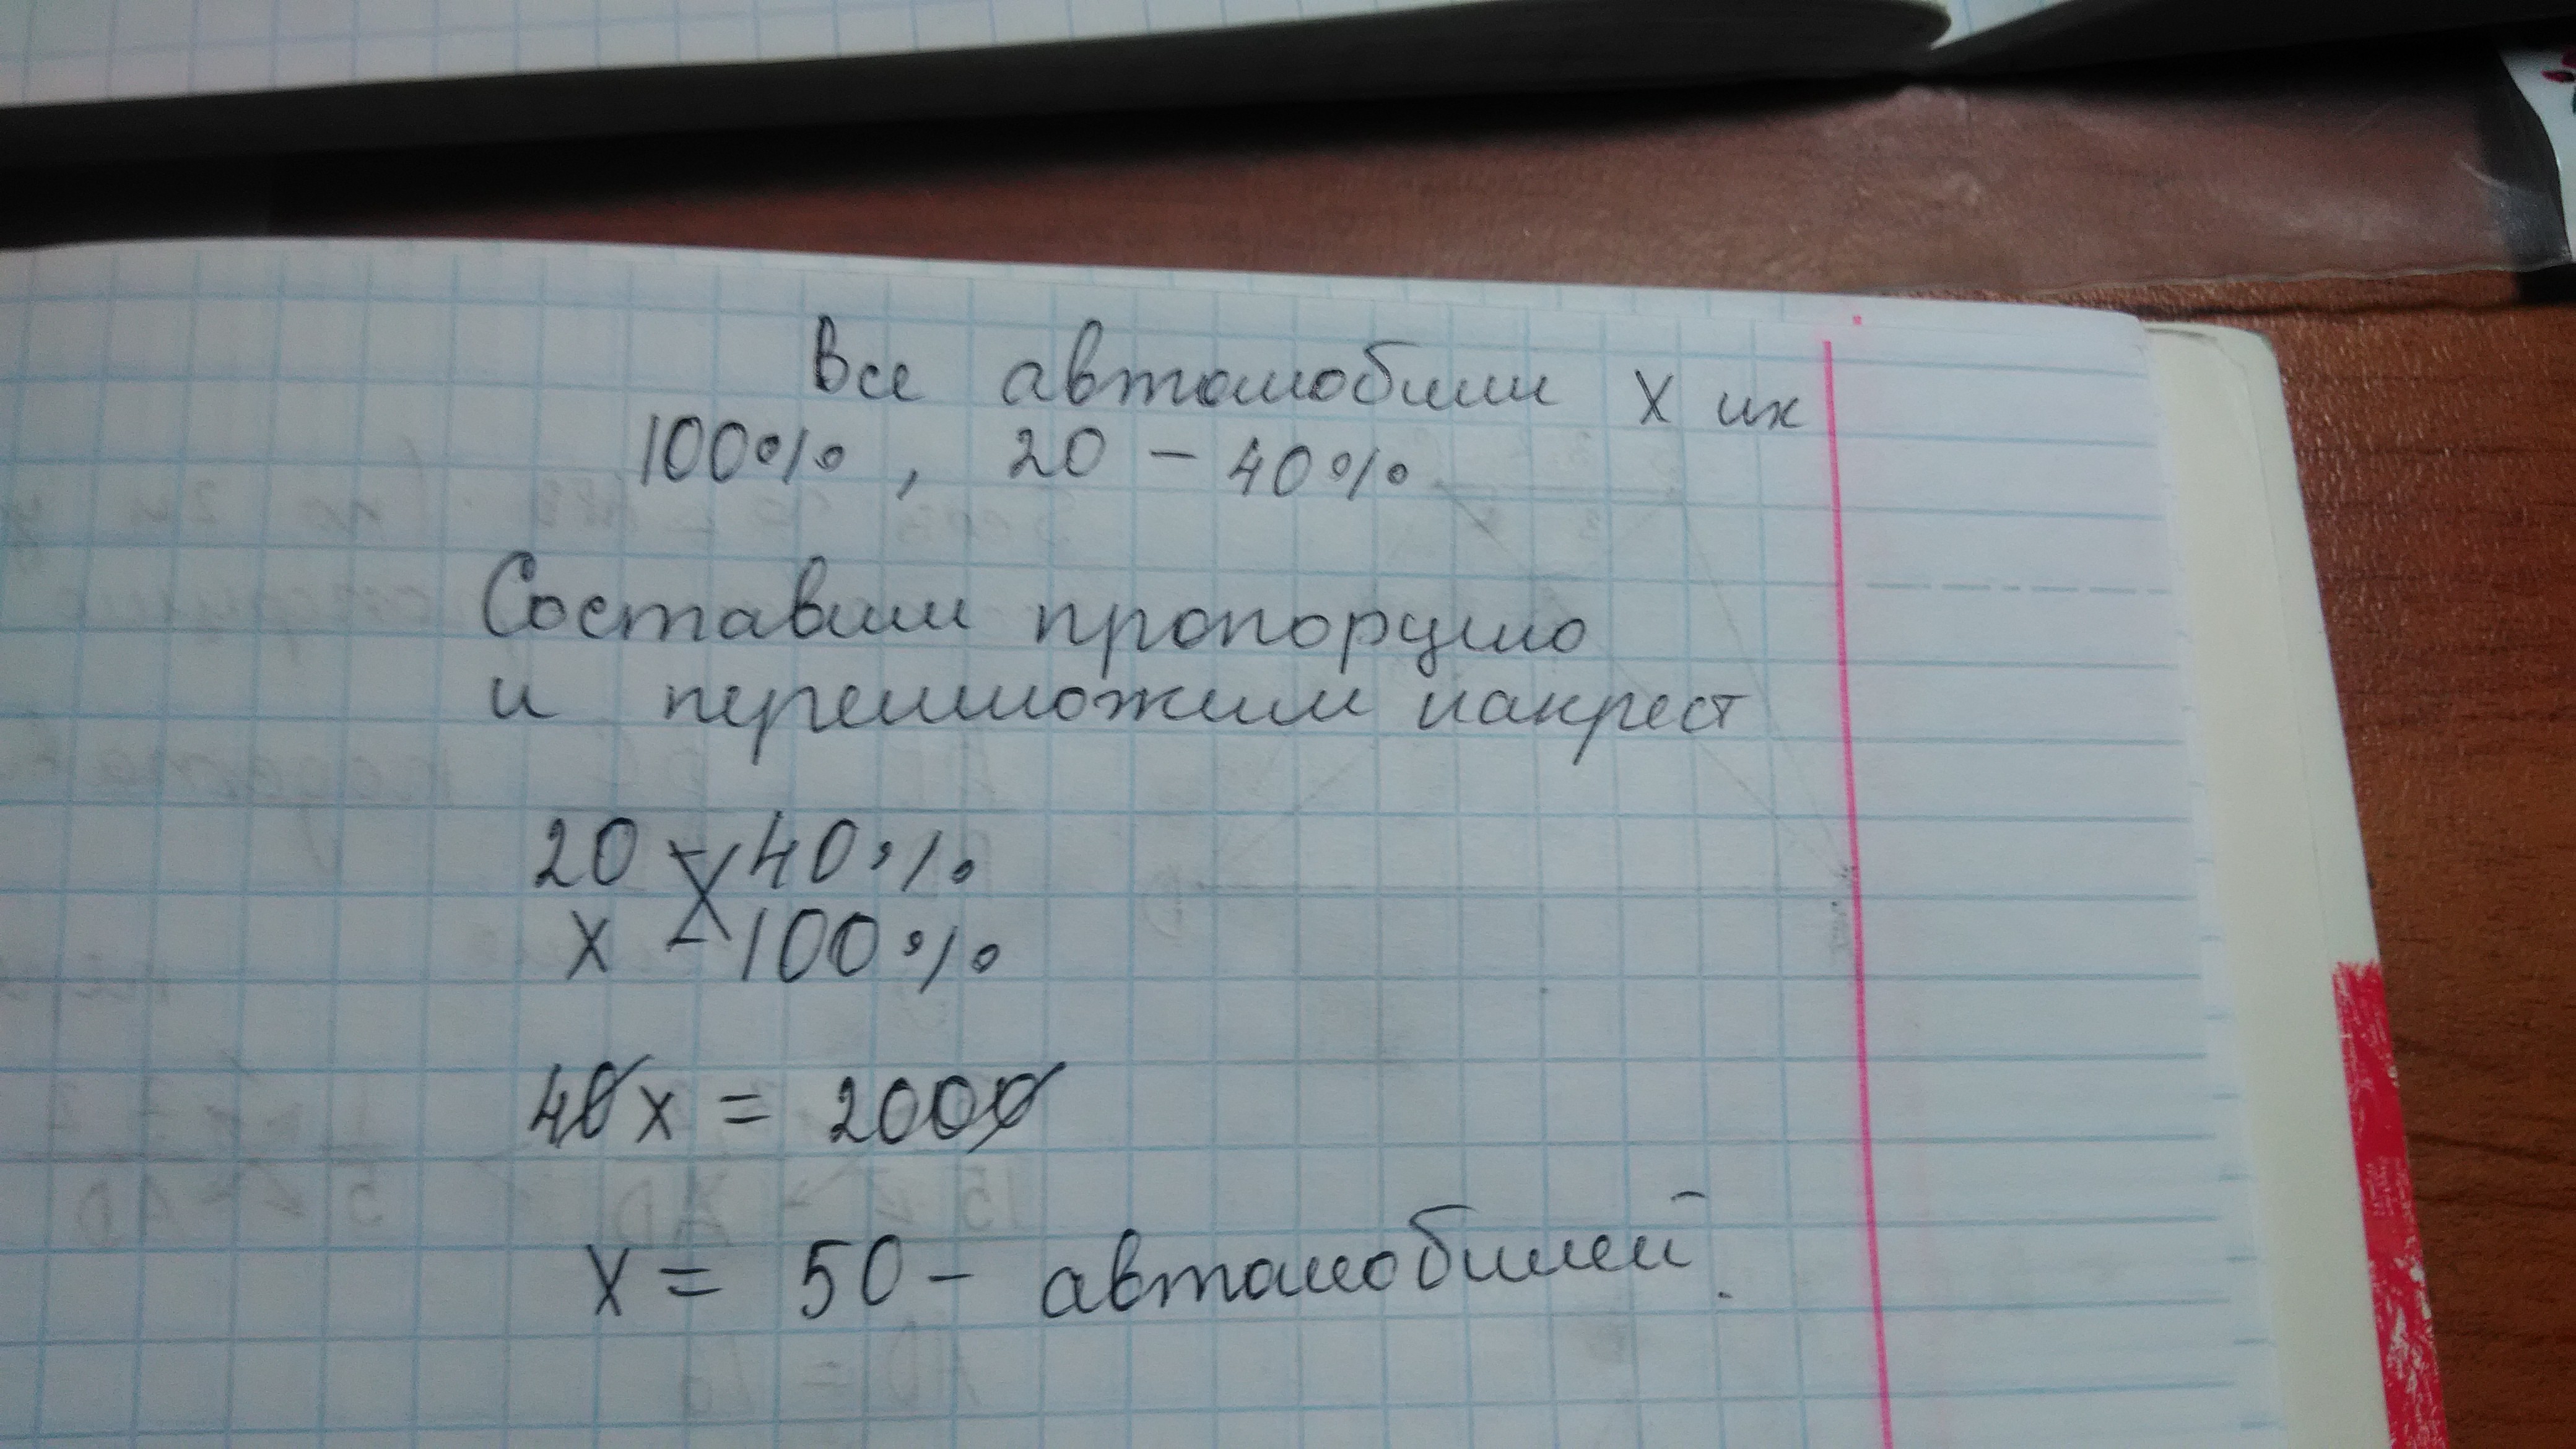 Все автомобили х их
100%, 20 - 40%
Составим пропорцию
и перемножим накрест
20 - 40%
х - 100%
40х = 2000
х = 50 - автомобилей.